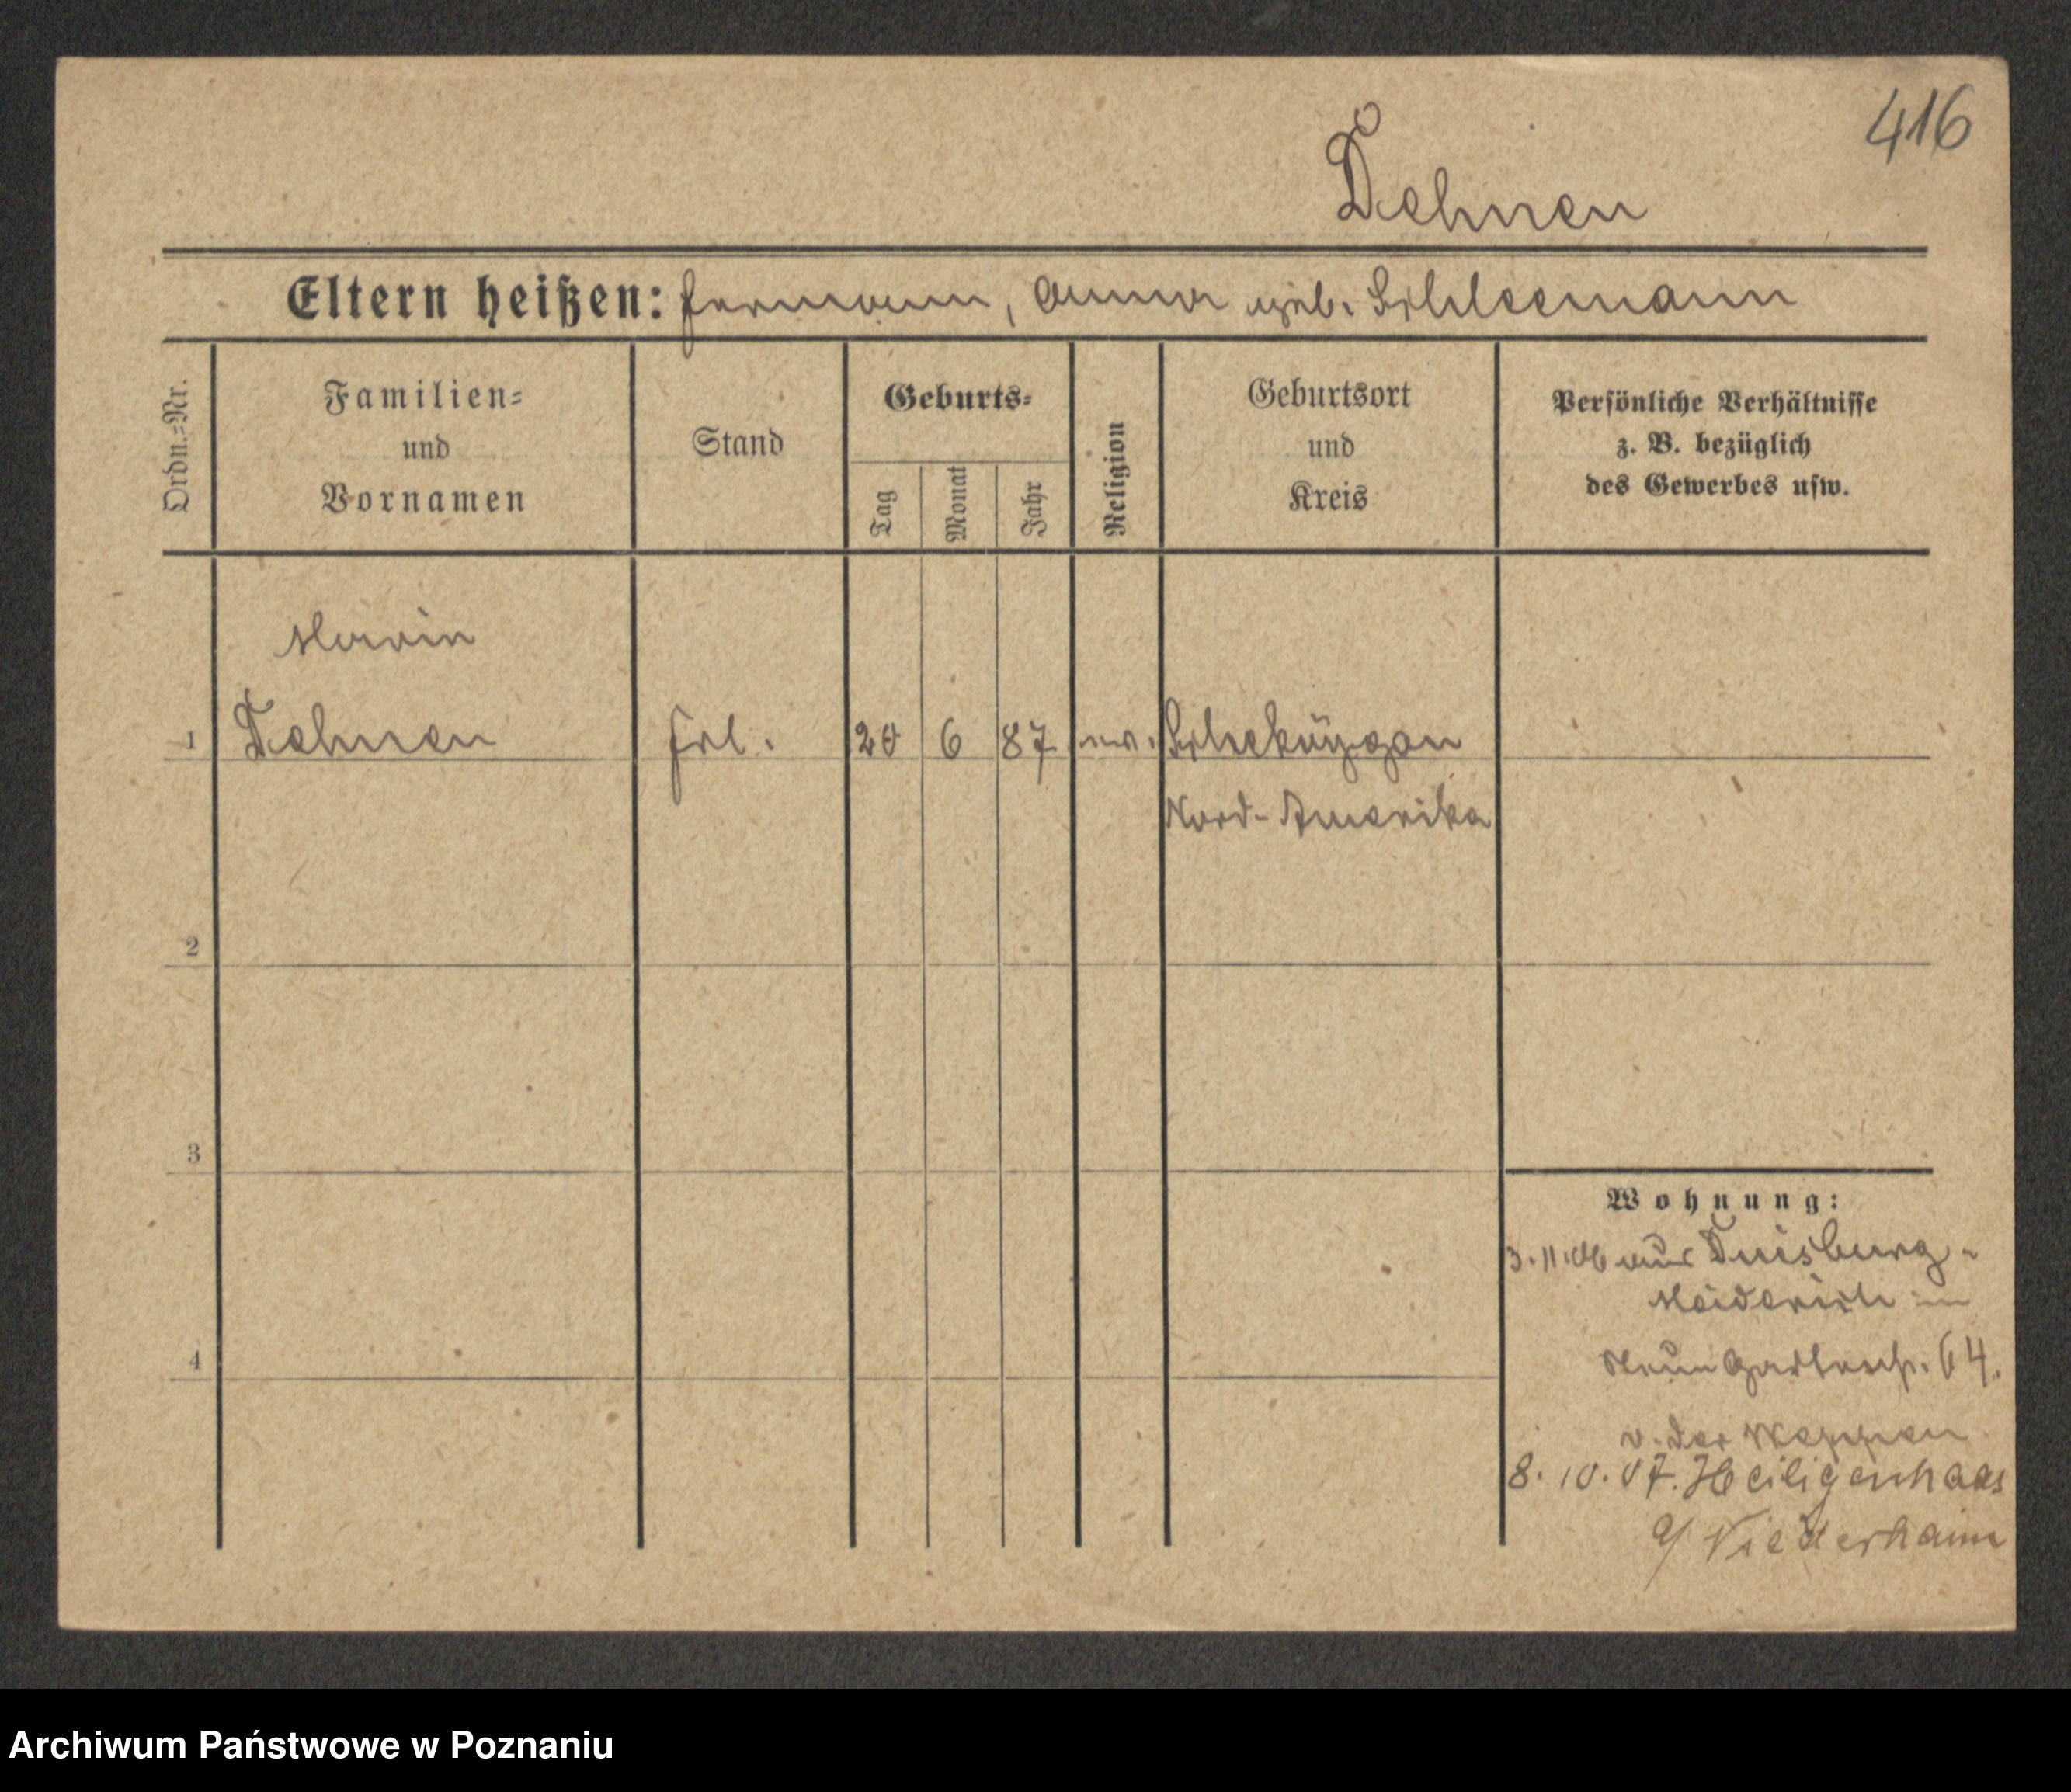 416
Dehnen
Eltern heißen: Hermann, Anna geb. Schleemann
Ordn.-Nr.
Familien-
und
Vornamen
Stand
Geburts-
Tag
Monat
Jahr
Religion
Geburtsort
und
Kreis
Persönliche Verhältnisse
z. B. bezüglich
des Gewerbes usw.
Maria
1 Dehnen Frl. 20 6 87 ev.
Nord-Amerika
2
3
4
Wohnung:
3.11.06 aus Duisburg-
Meiderich
64.
v. der
8. 10. 07. Heiligenhaus
Archiwum Państwowe w Poznaniu